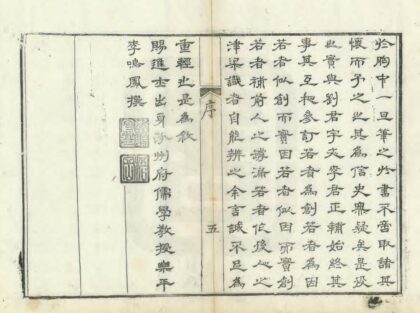 於胸中一旦筆之於書不啻取諸其
懷而予之也其為信史無疑矣是役
也實與劉君李君正輔始終其
事其互相參訂若者為創若者為因
若者似創而實因若者似因而實創
若者補前人之漏若者後人之
津梁識者自能辨之余言誠不足為
序
五
重輕也是為敘
賜進士出身汾州府儒學教授樂平
李鳴鳳撰